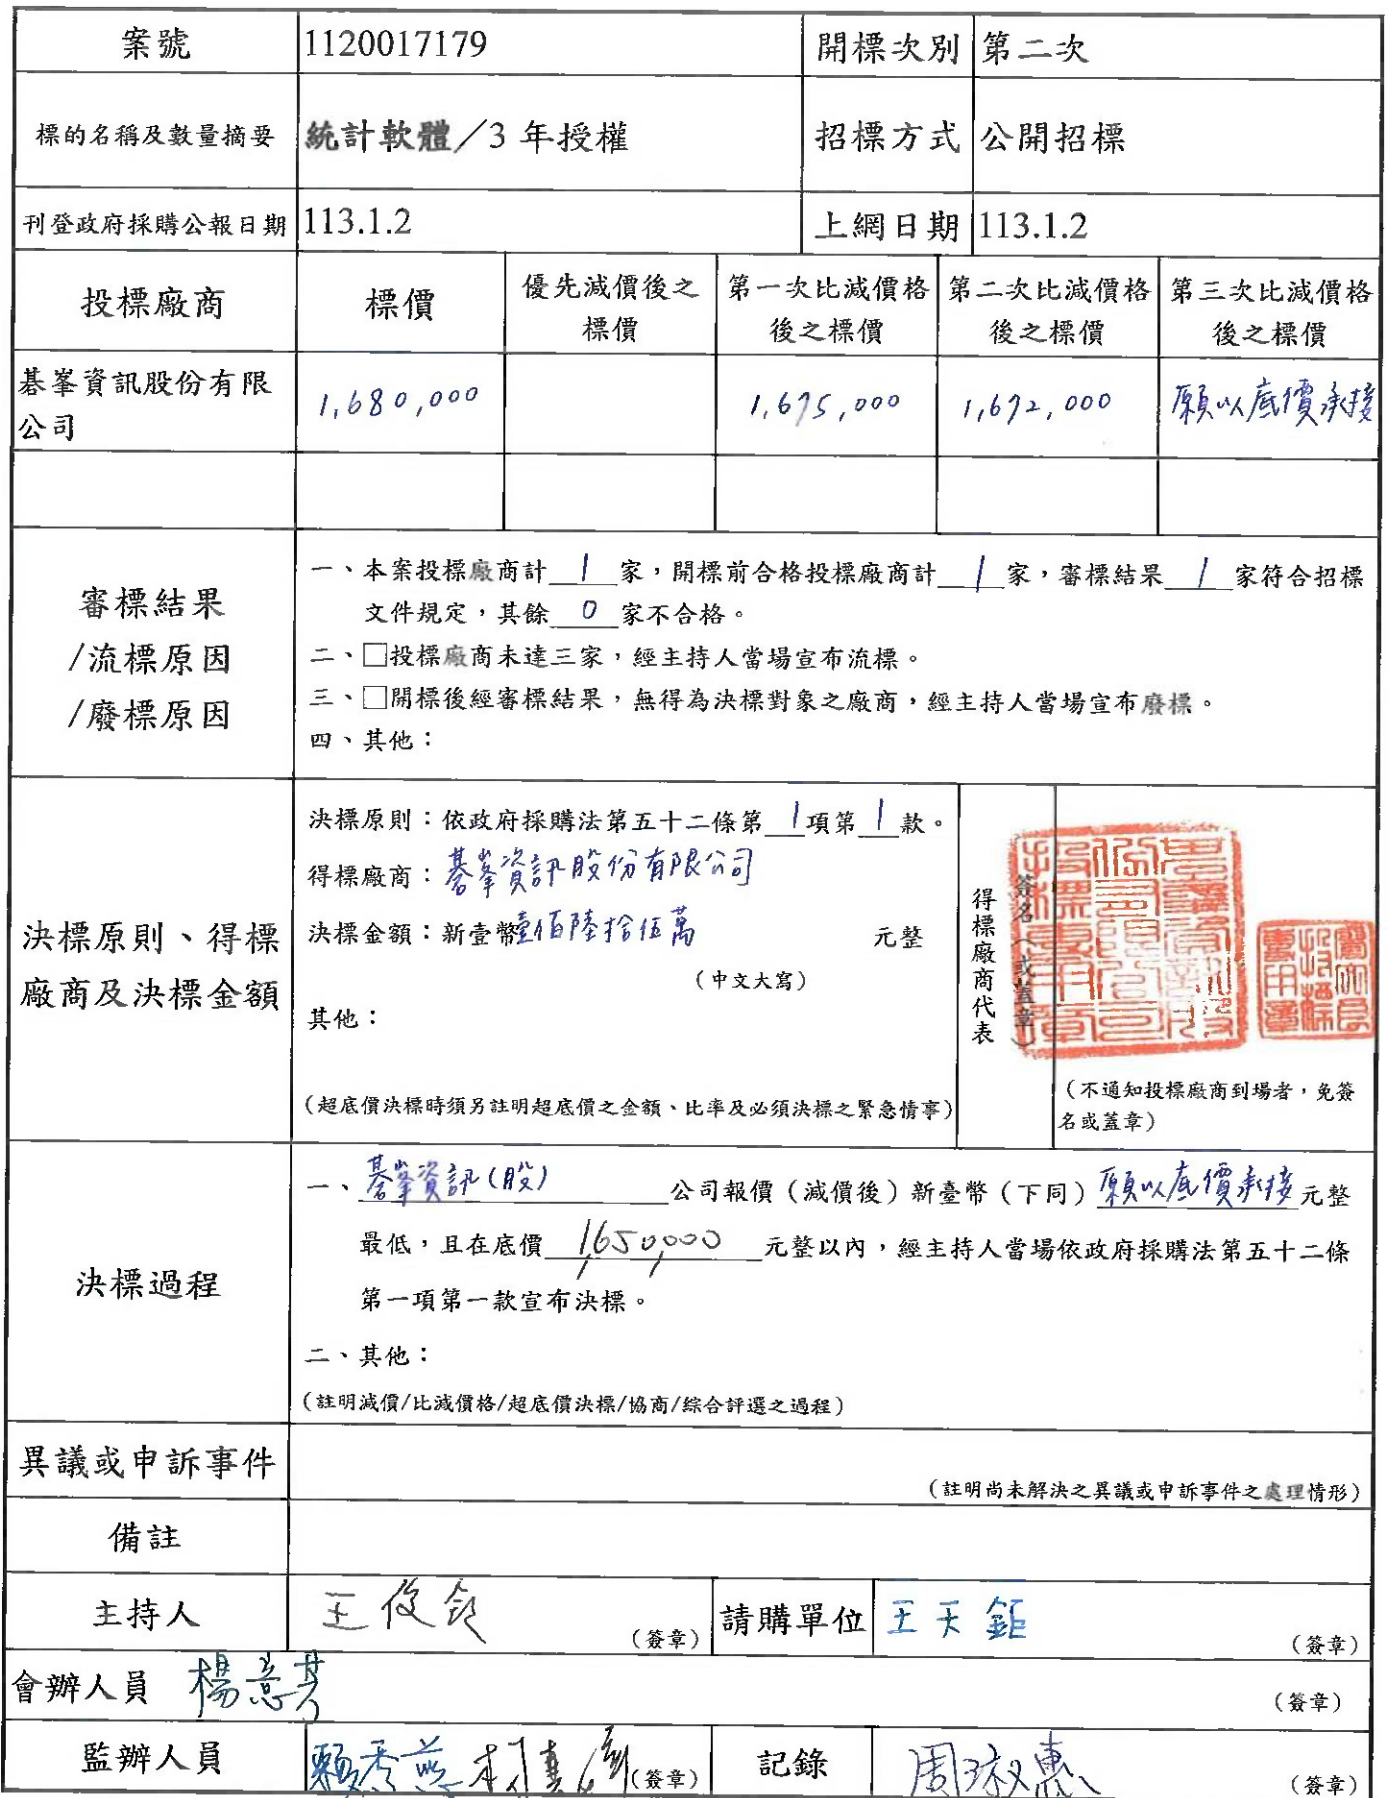 案號 1120017179 開標次別 第二次
標的名稱及數量摘要 統計軟體／3 年授權 招標方式 公開招標
刊登政府採購公報日期 113.1.2 上網日期 113.1.2
投標廠商 標價 優先減價後之標價 第一次比減價格後之標價 第二次比減價格後之標價 第三次比減價格後之標價
碁峯資訊股份有限公司 1,680,000 1,675,000 1,672,000 願以底價承接
審標結果
/流標原因
/廢標原因
一、本案投標廠商計 1 家，開標前合格投標廠商計 1 家，審標結果 1 家符合招標
文件規定，其餘 0 家不合格。
二、□投標廠商未達三家，經主持人當場宣布流標。
三、□開標後經審標結果，無得為決標對象之廠商，經主持人當場宣布廢標。
四、其他：
決標原則、得標
廠商及決標金額
決標原則：依政府採購法第五十二條第 1 項第 1 款。
得標廠商：碁峯資訊股份有限公司
決標金額：新壹幣壹佰陸拾伍萬 元整
（中文大寫）
其他：
（超底價決標時須另註明超底價之金額、比率及必須決標之緊急情事）
得標廠商代表
簽名（或蓋章）
（不通知投標廠商到場者，免簽
名或蓋章）
決標過程
一、碁峯資訊(股) 公司報價（減價後）新臺幣（下同）願以底價承接元整
最低，且在底價 1,650,000 元整以內，經主持人當場依政府採購法第五十二條
第一項第一款宣布決標。
二、其他：
（註明減價/比減價格/超底價決標/協商/綜合評選之過程）
異議或申訴事件
（註明尚未解決之異議或申訴事件之處理情形）
備註
主持人 王俊 （簽章） 請購單位 王天鉅 （簽章）
會辦人員 楊意 （簽章）
監辦人員 賴秀燕 （簽章） 記錄 周淑惠 （簽章）